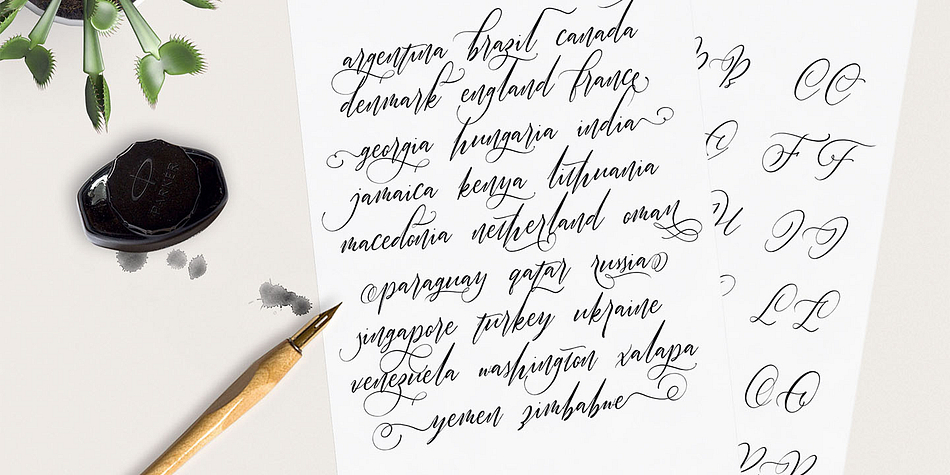 argentina brazil canada
denmark england france
georgia hungaria india
jamaica kenya lithuania
macedonia netherland oman
paraguay qatar russia
singapore turkey ukraine
venezuela washington xalapa
yemen zimbabwe
PARKER
C C
F F
I I
L L
O O